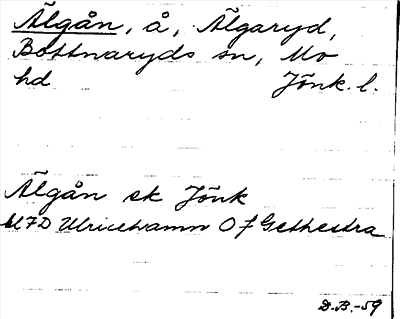 Älgån, å, Älgaryd,
Bottnaryds sn, Mo
hd Jönk. l.
Älgån ek Jönk
M7D Ulricehamn O f Gethestra
D.B.-59